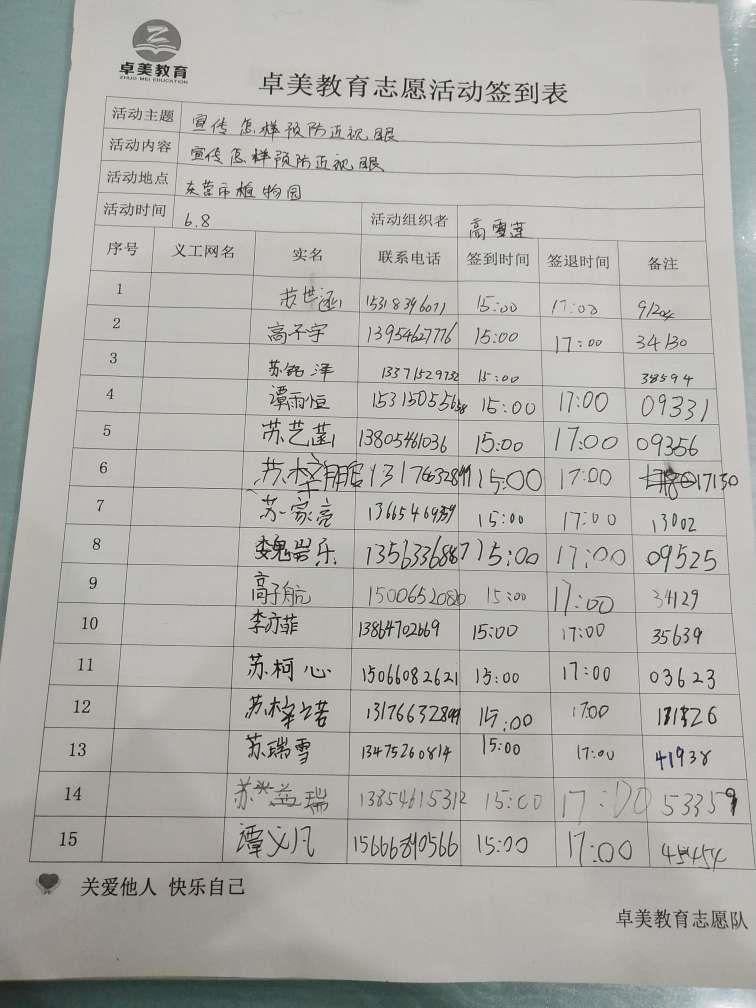 卓美教育
ZHUO MEI EDUCATION
卓美教育志愿活动签到表
活动主题 宣传怎样预防近视眼
活动内容 宣传怎样预防近视眼
活动地点 东营市植物园
活动时间 6.8 活动组织者 高雪莲
序号 义工网名 实名 联系电话 签到时间 签退时间 备注
1 苏世涵 15318396071 15:00 17:00 91204
2 高子宇 13954627776 15:00 17:00 34130
3 苏铭洋 13371529732 15:00 38594
4 谭雨恒 15315055658 15:00 17:00 09331
5 苏艺菡 13805461036 15:00 17:00 09356
6 13176632899 15:00 17:00 17130
7 苏家亮 15:00 17:00 13002
8 魏岩乐 13563368877 15:00 17:00 09525
9 高子航 15006520820 15:00 17:00 34129
10 李亦菲 13864702669 15:00 17:00 35639
11 苏柯心 15066082621 15:00 17:00 03623
12 苏梓若 13176632899 15:00 17:00
13 苏瑞雪 13475260814 15:00 17:00 41938
14 瑞 13854615312 15:00 17:00 53359
15 谭义凡 15:00 17:00 45454
关爱他人 快乐自己
卓美教育志愿队